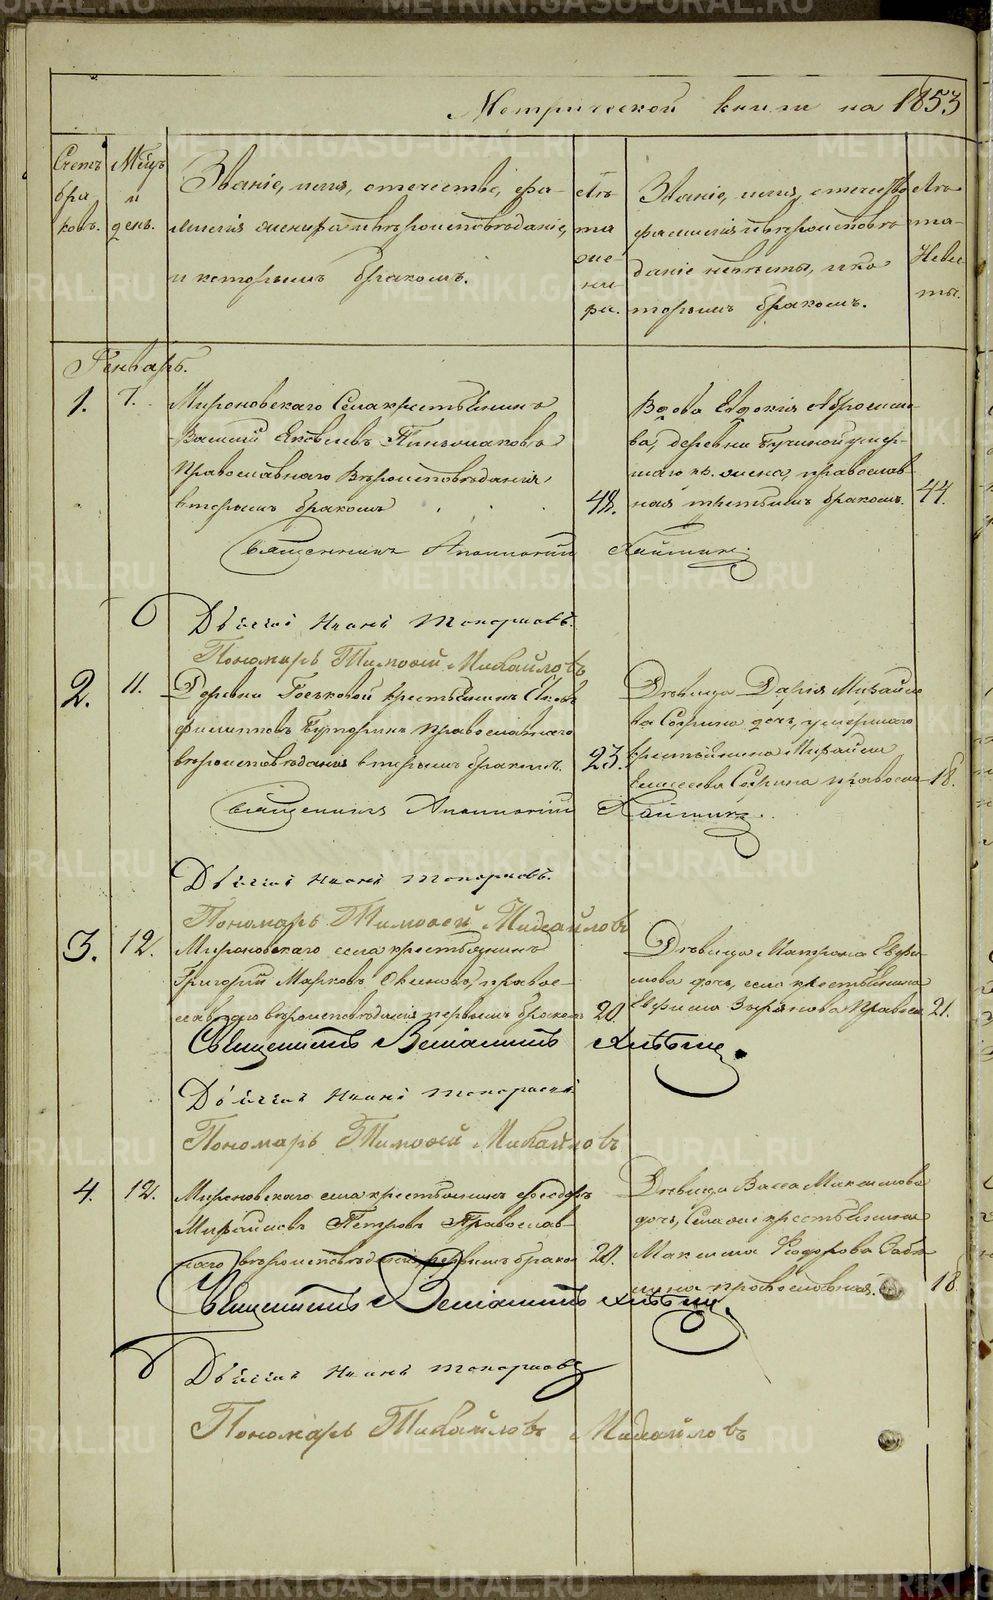 Метрической книги на 1853
Счетъ браковъ.
Мѣцъ и день.
Званіе, имя, отечество, фа-
милія жениха и вѣроисповѣданіе,
и которымъ бракомъ.
Лѣта жениха.
Званіе, имя, отечество
фамилія и вѣроисповѣ-
даніе невѣсты, и ко
торымъ бракомъ.
Лѣта Невѣсты.
Генварь.
1. 7.
Мироновскаго Села крестьянинъ
Василій Яковлевъ
Православнаго Вѣроисповѣданія,
вторымъ бракомъ
48.
Вдова Евдокія
ва, деревни умер-
шаго жена, православ
ная третьимъ бракомъ.
44.
Священникъ Аполлоній
Дьячекъ Иванъ Топорковъ.
Пономарь Тимоѳей Михайловъ
2. 11.
Деревни крестьянинъ Яковъ
Филиповъ православнаго
вѣроисповѣданія вторымъ бракомъ.
23.
Дѣвица Дарія Михайло
ва дочь, умершаго
крестьянина Михаила
православ
18.
Священникъ Аполлоній
Дьячекъ Иванъ Топорковъ.
Пономарь Тимоѳей Михайловъ
3. 12.
Мироновскаго села крестьянинъ
Григорій Марковъ правос-
лавнаго вѣроисповѣданія первымъ бракомъ
20.
Дѣвица Матрона Евфи-
мова дочь, села крестьянина
Евфима Зырянова Правосл
21.
Священникъ Веніаминъ
Дьячекъ Иванъ Топорковъ
Пономарь Тимоѳей Михайловъ
4. 12.
Мироновскаго села крестьянинъ Феодоръ
Михайловъ Петровъ Православ-
наго вѣроисповѣданія, первымъ бракомъ
20.
Дѣвица Васса Максимова
дочь, Села же крестьянина
Максима Феодорова
православная.
18
Священникъ Веніаминъ
Дьячекъ Иванъ Топорковъ
Пономарь Михайловъ
METRIKI.GASO-URAL.RU